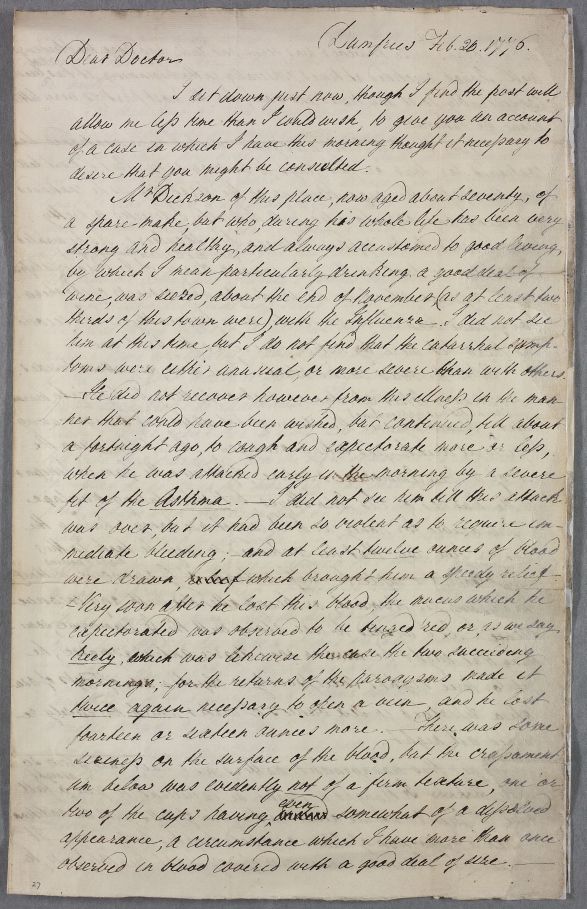 Dumfries Feb. 20. 1776.
Dear Doctor
I sit down just now, though I find the post will
allow me less time than I could wish, to give you an account
of a case in which I have this morning thought it necessary to
desire that you might be consulted.
Mr Dickson of this place, now aged about seventy, of
a spare make, but who, during his whole life has been very
strong and healthy, and always accustomed to good living,
by which I mean particularly drinking a good deal of
wine, was seized, about the end of November (as at least two
thirds of this town were), with the Influenza. I did not see
him at this time, but I do not find that the catarrhal symp-
toms were either unusual, or more severe than with others.
— He did not recover however from this illness in the man
ner that could have been wished, but continued, till about
a fortnight ago, to cough and expectorate more or less,
when he was attacked early in the morning by a severe
fit of the Asthma. — I did not see him till this attack
was over, but it had been so violent as to require im-
mediate bleeding; and at least twelve ounces of blood
were drawn, which brought him a speedy relief.
— Very soon after he lost this blood, the mucus which he
expectorated was observed to be tinged red, or, as we say,
which was likewise the case the two succeeding
mornings; for the returns of the paroxysms made it
twice again necessary to open a vein, and he lost
fourteen or sixteen ounces more. — There was some
siziness on the surface of the blood, but the crassament
um below was evidently not of a firm texture, one or
two of the cups having even somewhat of a dissolved
appearance, a circumstance which I have more than once
observed in blood covered with a good deal of size. —
27